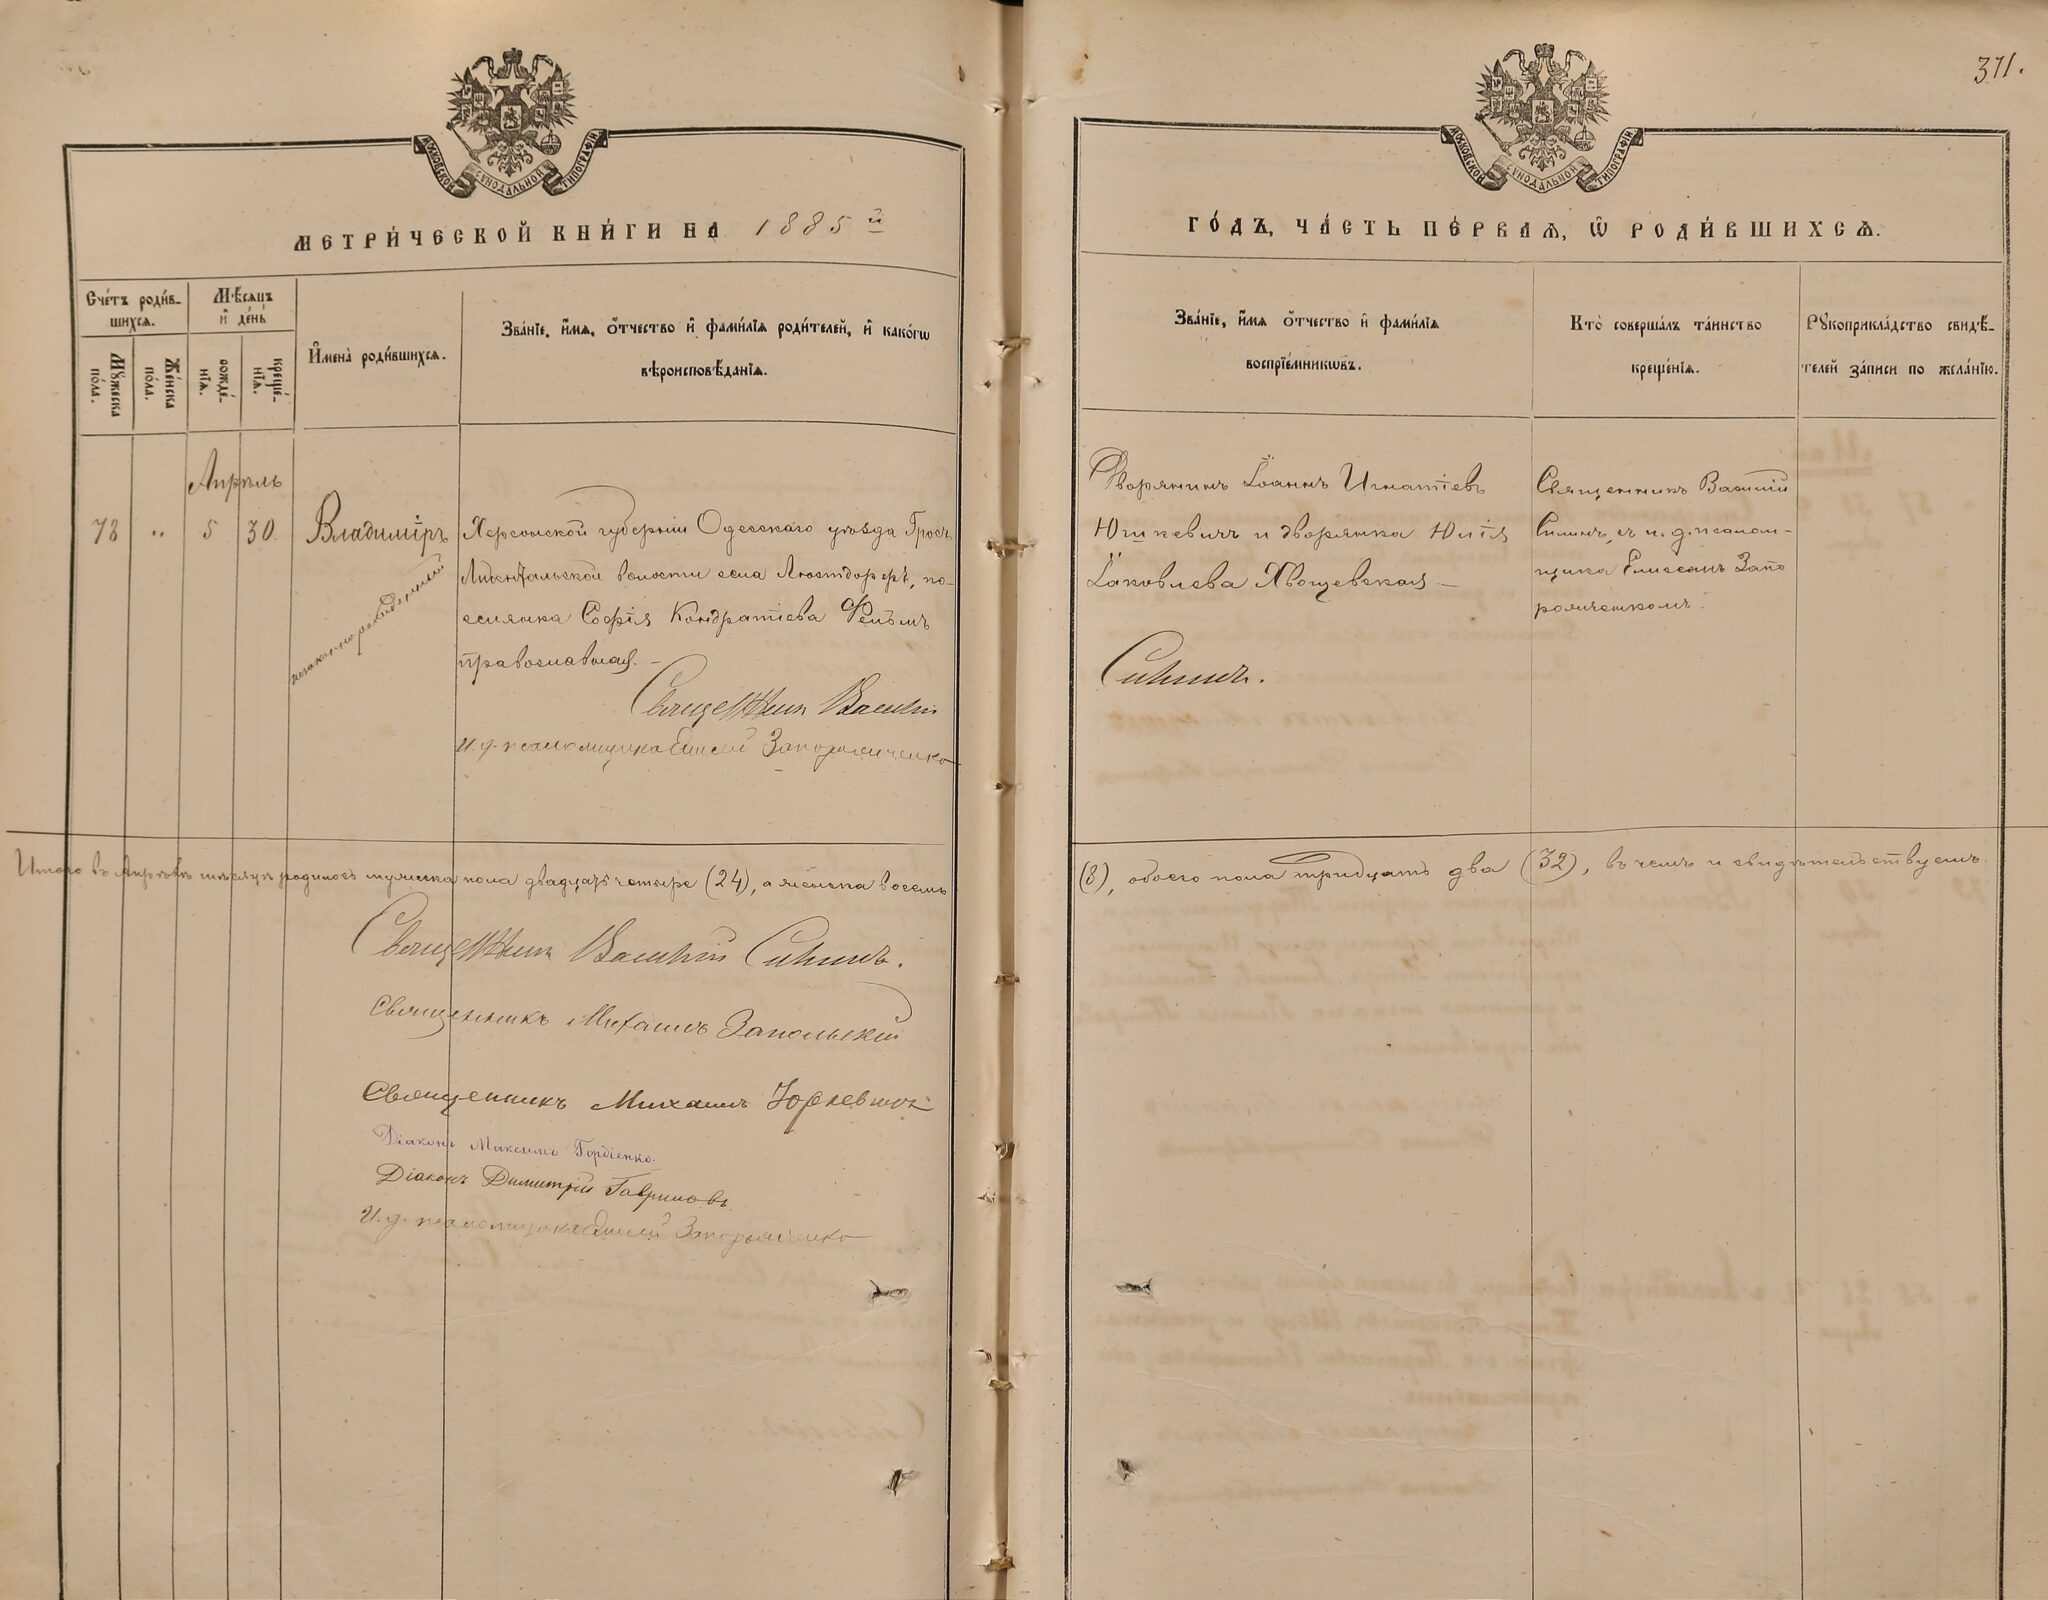 371.
МОСКОВСКОЙ СѴНОДАЛЬНОЙ ТИПОГРАФІИ
МОСКОВСКОЙ СѴНОДАЛЬНОЙ ТИПОГРАФІИ
МЕТРИ́ЧЕСКОЙ КНИ́ГИ НА 1885й
ГО́ДЪ, ЧА́СТЬ ПЕ́РВАѦ, Ѡ҆ РОДИ́ВШИХСѦ.
Сче́тъ роди́в-
шихсѧ.
Мꙋ́жеска
по́ла.
Же́нска
по́ла.
Мѣ́сѧцъ
и҆ де́нь
рожде́-
нїѧ.
креще́-
нїѧ.
И҆мена̀ роди́вшихсѧ.
Зва́нїе, и҆́мѧ, ѻ҆́тчество и҆ фами́лїѧ роди́телей, и҆ како́гѡ
вѣроисповѣ́данїѧ.
Зва́нїе, и҆́мѧ ѻ҆́тчество и҆ фами́лїѧ
воспрїе́мникѡвъ.
Кто̀ соверша́лъ та́инство
креще́нїѧ.
Рꙋкоприкла́дство свидѣ́-
телей за́писи по жела́нїю.
Апрѣль
78 " 5 30.
Владиміръ
незаконнорожденный
Херсонской губерніи Одесскаго уѣзда Гросъ
Либентальской волости села Люстдорфъ, по-
селянка Софія Кондратіева Фельмъ
православная. –
Священникъ Василій
И. д. псаломщика Елисей Запорожченко
Дворянинъ Іоаннъ Игнатіевъ
Юшкевичъ и дворянка Юлія
Іаковлева Хвощевская –
Силинъ.
Священникъ Василій
Силинъ, съ и. д. псалом-
щика Елисеемъ Запо
рожченкомъ.
Итого въ Апрѣлѣ мѣсяцѣ родилось мужска пола двадцать четыре (24), а женска восемь
(8), обоего пола тридцать два (32), въ чемъ и свидѣтельствуемъ.
Священникъ Василій Силинъ.
Священникъ Михаилъ Запольскій
Священникъ Михаилъ Юркевичъ
Діаконъ Максимъ Гордіенко.
Діаконъ Димитрій Гавриловъ.
И. д. псаломщика Елисей Запорожченко